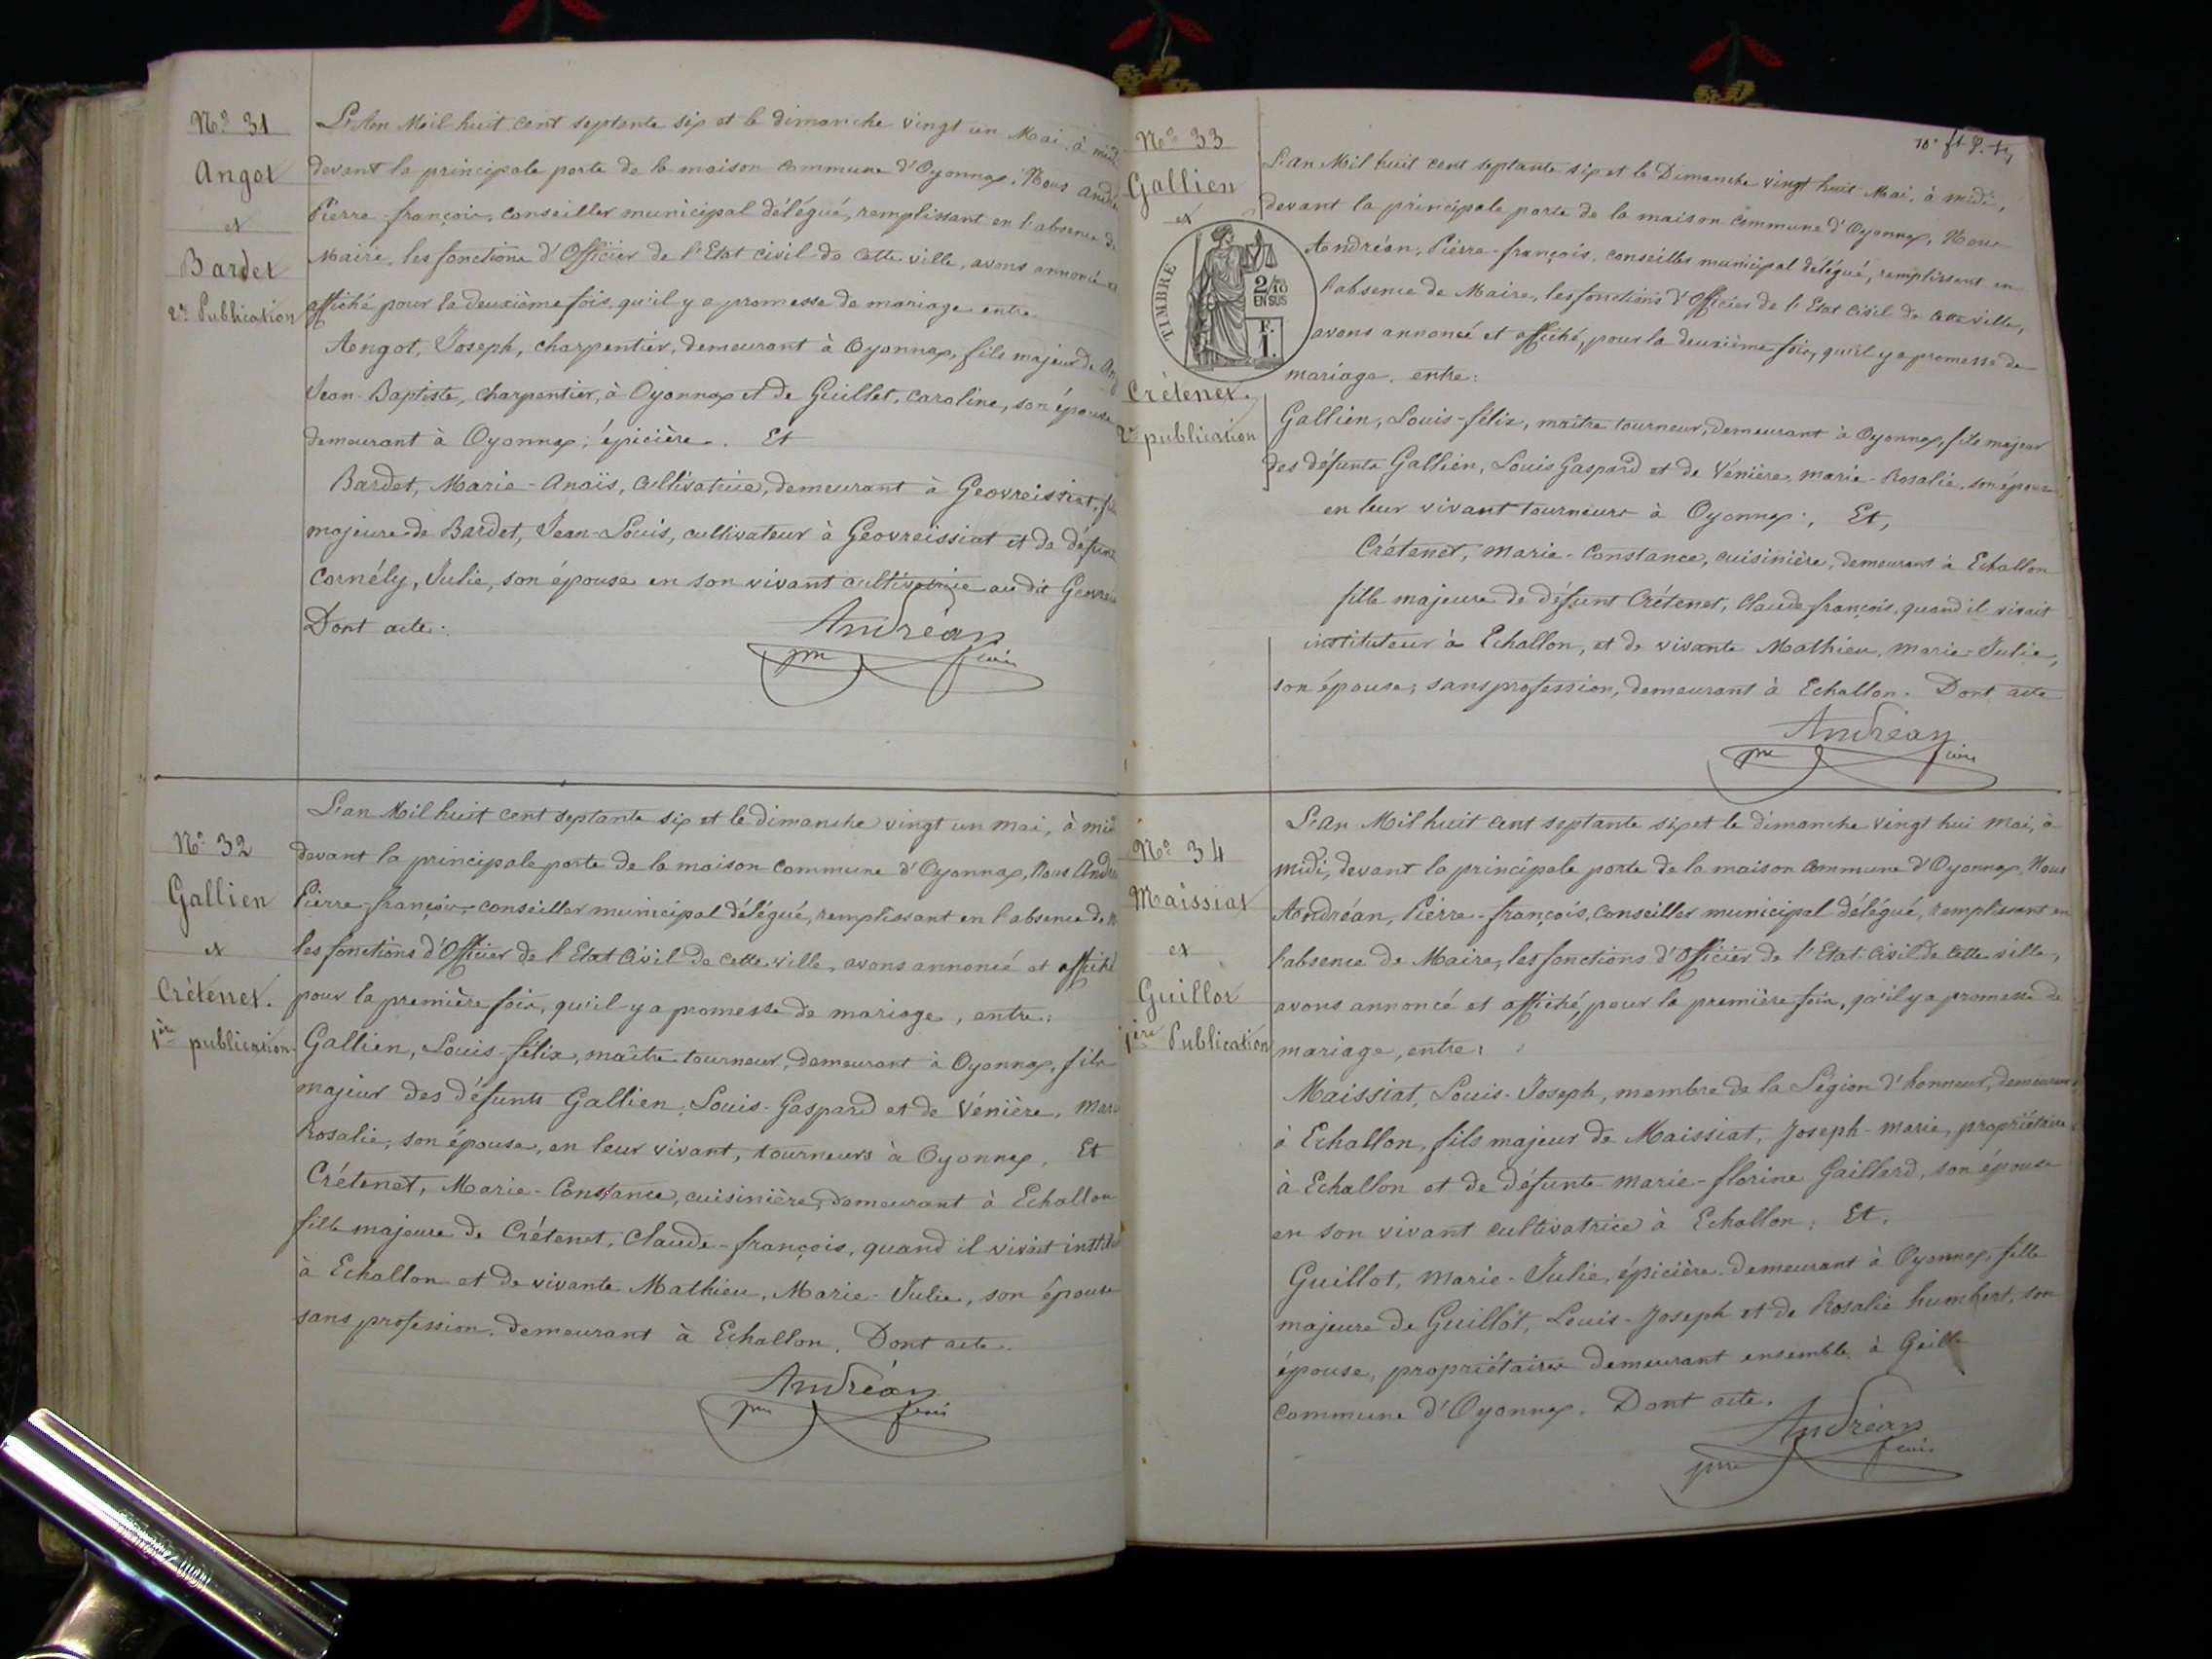 Nº 31
Angot
et
Bardet
2e Publication
L'An Mil huit cent septante six et le dimanche vingt un Mai, à midi
devant la principale porte de la maison commune d'Oyonnax, Nous
Pierre-françois, conseiller municipal délégué, remplissant en l'absence de
Maire, les fonctions d'Officier de l'Etat civil de cette ville, avons annoncé et
affiché pour la deuxième fois, qu'il y a promesse de mariage entre
Angot, Joseph, charpentier, demeurant à Oyonnax, fils majeur de
Jean-Baptiste, charpentier, à Oyonnax et de Guillet, Caroline, son épouse
demeurant à Oyonnax, épicière. Et
Bardet, Marie-Anaïs, cultivatrice, demeurant à Geovreissiat,
majeure de Bardet, Jean-Louis, cultivateur à Geovreissiat et de
Cornély, Julie, son épouse en son vivant cultivatrice au dit
Dont acte.
Andréan
Nº 32
Gallien
et
Crétenet.
1ère publication
L'an Mil huit cent septante six et le dimanche vingt un mai, à
devant la principale porte de la maison commune d'Oyonnax, Nous
Pierre-françois, conseiller municipal délégué, remplissant en l'absence de
les fonctions d'Officier de l'Etat Civil de cette ville, avons annoncé et affiché
pour la première fois, qu'il y a promesse de mariage, entre:
Gallien, Louis-félix, maître tourneur, demeurant à Oyonnax, fils
majeur des défunts Gallien, Louis-Gaspard et de Vénière,
Rosalie, son épouse, en leur vivant, tourneurs à Oyonnax. Et
Crétenet, Marie-Constance, cuisinière, demeurant à Echallon
fille majeure de Crétenet, Claude-françois, quand il vivait
à Echallon et de vivante Mathieu, Marie-Julie, son épouse
sans profession, demeurant à Echallon. Dont acte.
Andréan
Nº 33
Gallien
et
TIMBRE
2/10
EN SUS
F.
1.
Crétenet.
2e publication
L'an Mil huit cent septante six et le Dimanche vingt huit Mai, à midi,
devant la principale porte de la maison commune d'Oyonnax, Nous
Andréan, Pierre-françois, conseiller municipal délégué, remplissant en
l'absence de Maire, les fonctions d'Officier de l'Etat Civil de cette ville,
avons annoncé et affiché, pour la deuxième fois, qu'il y a promesse de
mariage, entre:
Gallien, Louis-félix, maître tourneur, demeurant à Oyonnax, fils majeur
des défunts Gallien, Louis Gaspard et de Vénière, marie-Rosalie, son épouse
en leur vivant tourneurs à Oyonnax, Et,
Crétenet, marie-Constance, cuisinière, demeurant à Echallon
fille majeure de défunt Crétenet, Claude françois, quand il vivait
instituteur à Echallon, et de vivante Mathieu, marie-Julie,
son épouse, sans profession, demeurant à Echallon. Dont acte
Andréan
Nº 34
Maissiat
et
Guillot
1ère Publication
L'an Mil huit cent septante six et le dimanche vingt hui mai, à
midi, devant la principale porte de la maison commune d'Oyonnax, Nous
Andréan, Pierre-françois, Conseiller municipal délégué, remplissant en
l'absence de Maire, les fonctions d'Officier de l'Etat-Civil de cette ville,
avons annoncé et affiché, pour la première fois, qu'il y a promesse de
mariage, entre:
Maissiat, Louis-Joseph, membre de la Légion d'honneur, demeurant
à Echallon, fils majeur de Maissiat, Joseph-marie, propriétaire
à Echallon et de défunte marie-florine Gaillard, son épouse
en son vivant cultivatrice à Echallon; Et,
Guillot, marie-Julie, épicière, demeurant à Oyonnax, fille
majeure de Guillot, Louis-Joseph et de Rosalie humbert, son
épouse, propriétaires demeurant ensemble à Geilles
commune d'Oyonnax. Dont acte.
Andréan